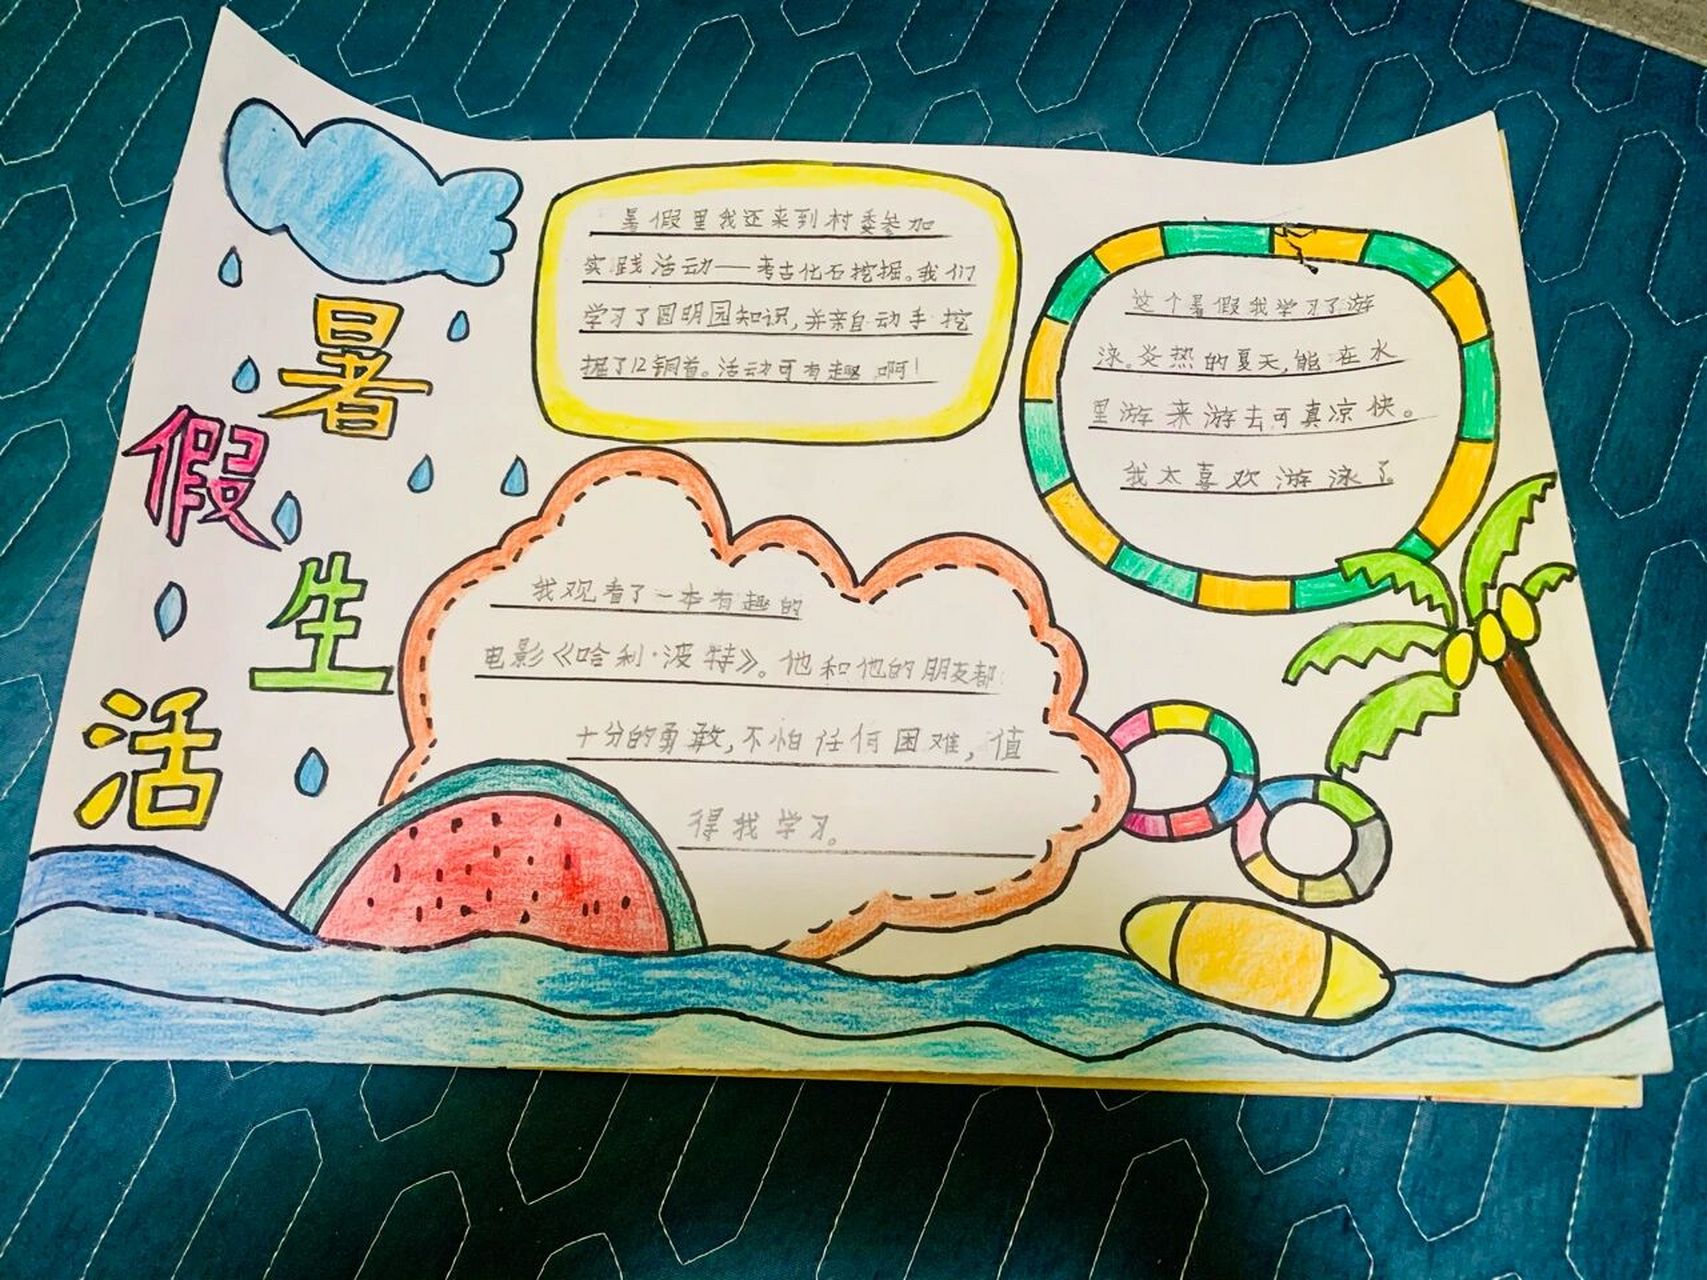 暑
假
生
活
暑假里我还来到村委参加
实践活动——考古化石挖掘。我们
学习了圆明园知识,并亲自动手挖
掘了12铜首。活动可有趣啊!
这个暑假我学习了游
泳。炎热的夏天,能在水
里游来游去可真凉快。
我太喜欢游泳了
我观看了一本有趣的
电影《哈利·波特》。他和他的朋友都
十分的勇敢,不怕任何困难,值
得我学习。